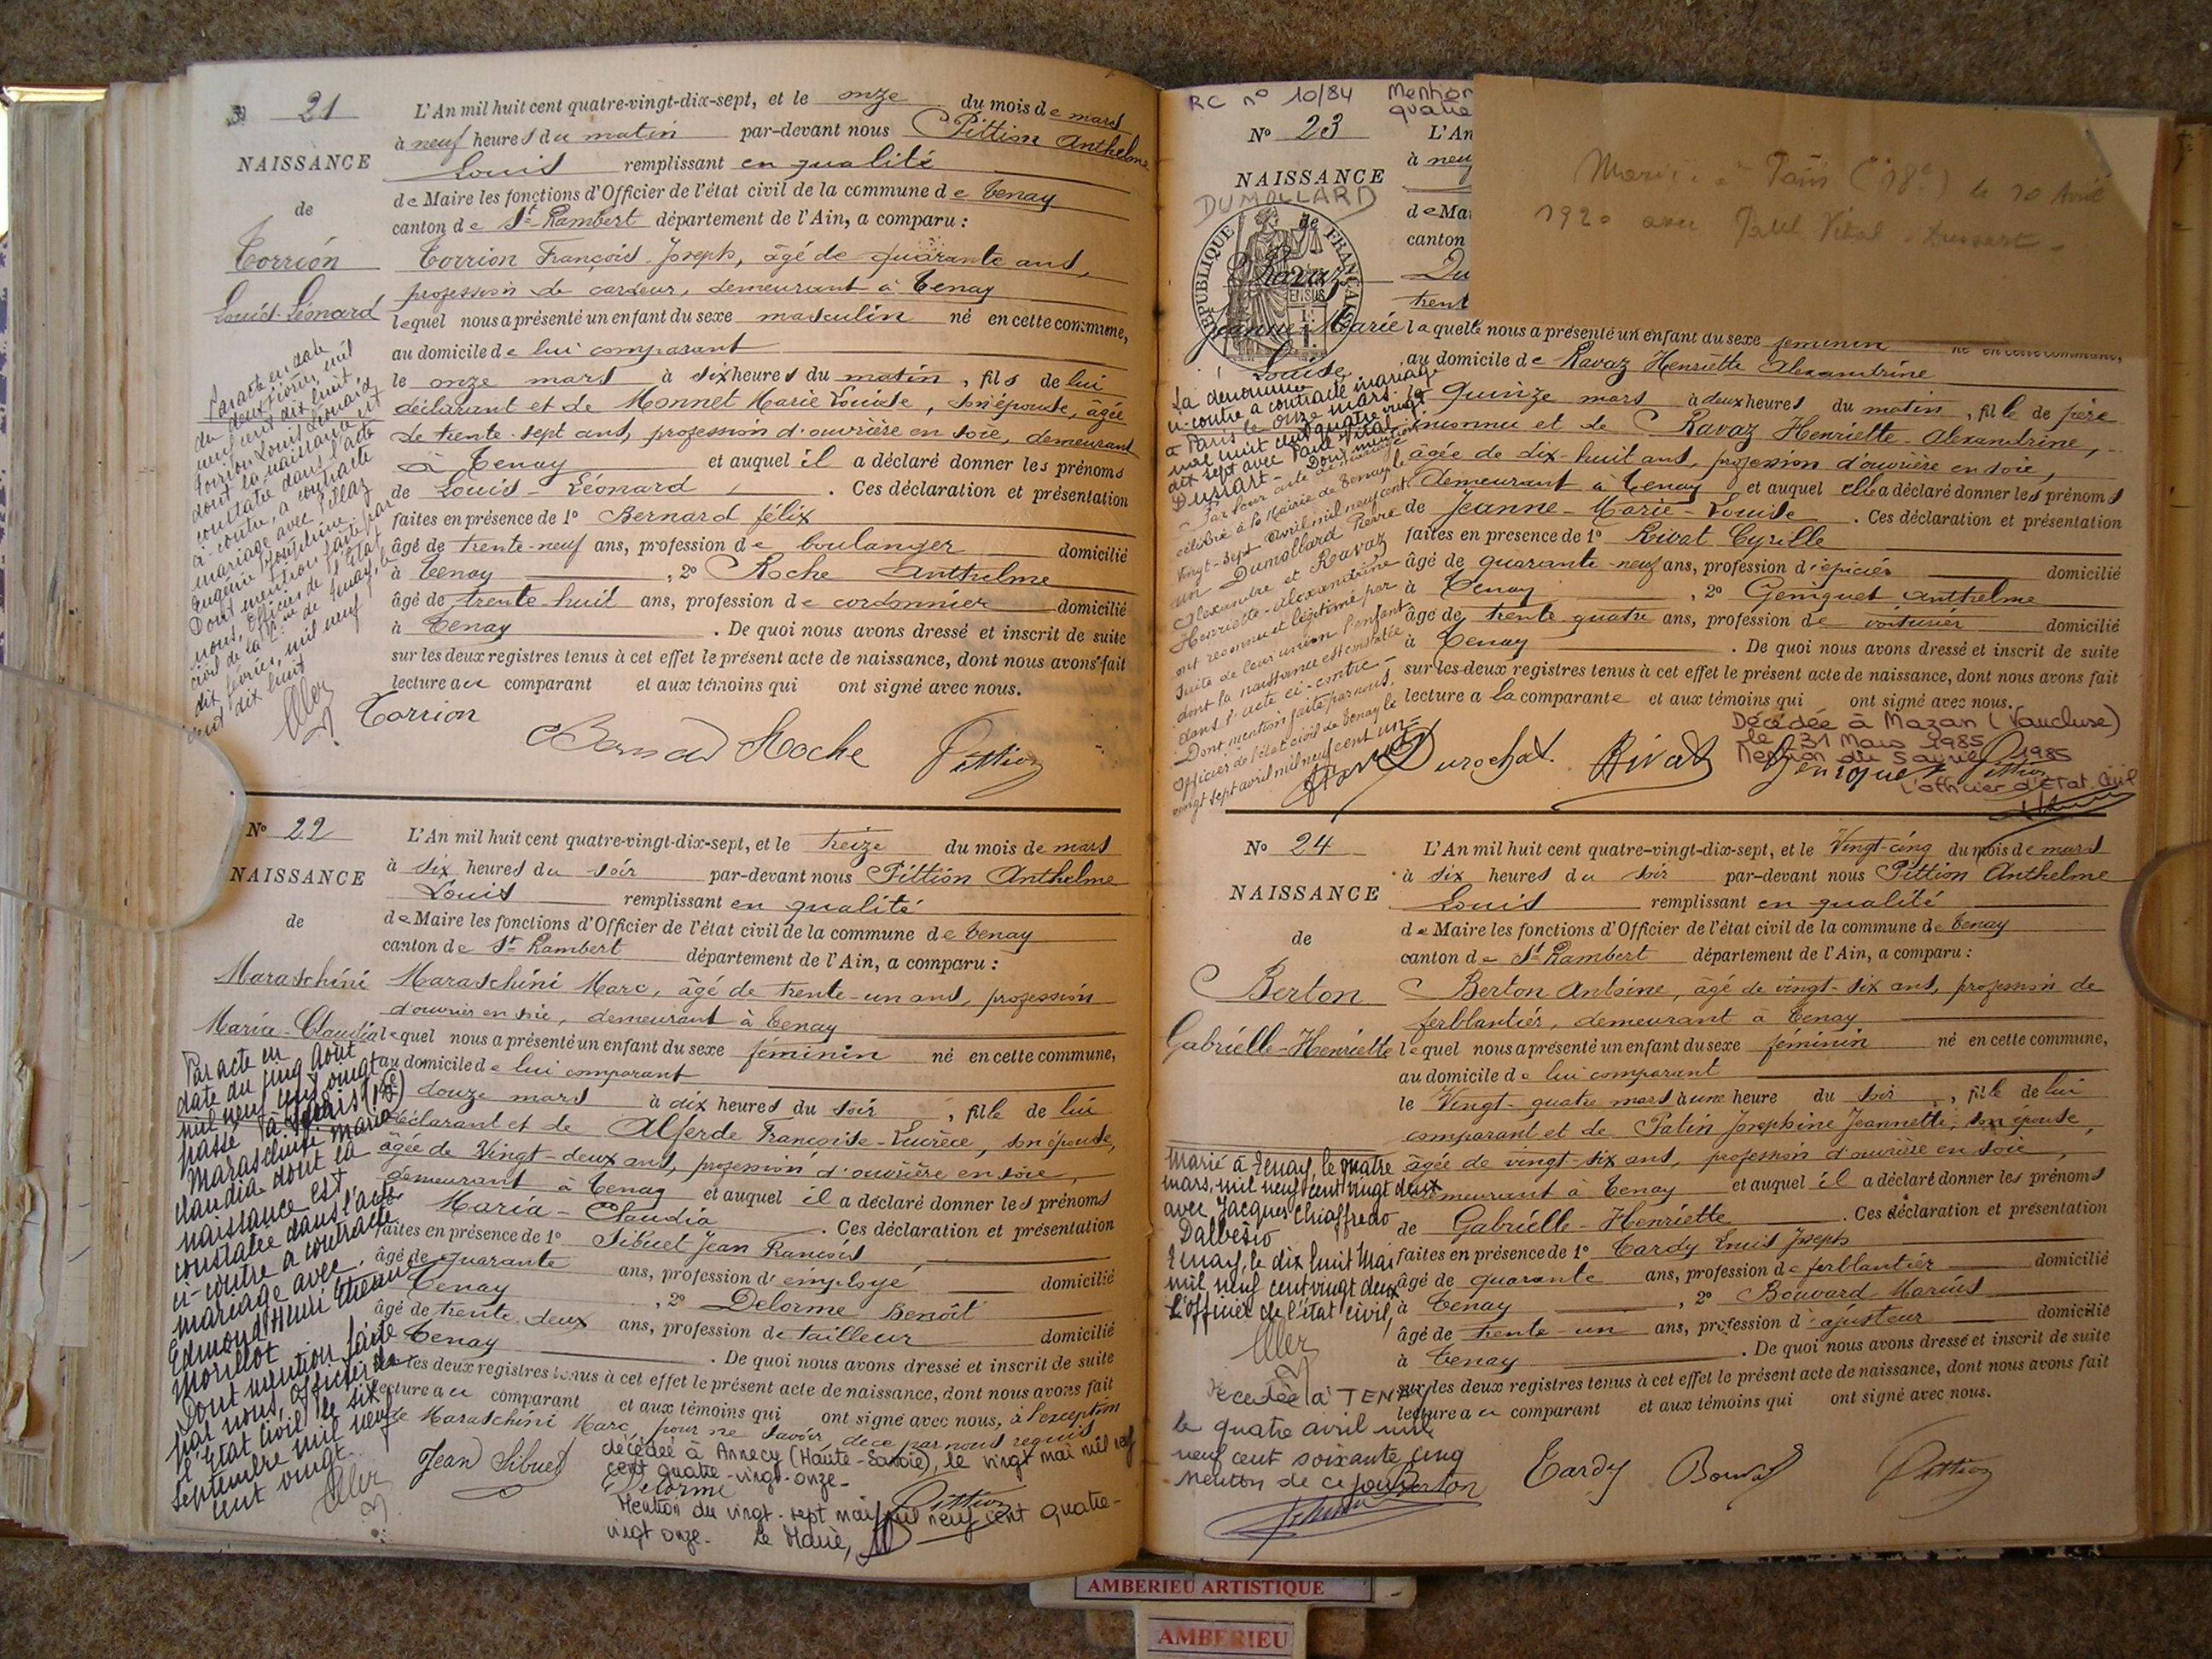 N° 21
NAISSANCE
de
Torrion
Louis-Léonard
L'An mil huit cent quatre-vingt-dix-sept, et le onze du mois de mars
à neuf heures du matin par-devant nous Pittion Anthelme
Louis remplissant en qualité
de Maire les fonctions d'Officier de l'état civil de la commune de Tenay
canton de St Rambert département de l'Ain, a comparu :
Torrion François-Joseph, âgé de quarante ans,
profession de cardeur, demeurant à Tenay
lequel nous a présenté un enfant du sexe masculin né en cette commune,
au domicile de lui comparant
le onze mars à six heures du matin, fils de lui
déclarant et de Monnet Marie Louise, son épouse, âgée
de trente-sept ans, profession d'ouvrière en soie, demeurant
à Tenay et auquel il a déclaré donner les prénoms
de Louis-Léonard. Ces déclaration et présentation
faites en présence de 1° Bernard félix
âgé de trente-neuf ans, profession de boulanger domicilié
à Tenay, 2° Roche Anthelme
âgé de trente-huit ans, profession de cordonnier domicilié
à Tenay. De quoi nous avons dressé et inscrit de suite
sur les deux registres tenus à cet effet le présent acte de naissance, dont nous avons fait
lecture au comparant et aux témoins qui ont signé avec nous.
Par acte en date
du deux février mil
neuf cent dix huit
Torrion Louis Léonard
dont la naissance est
constatée dans l'acte
ci-contre, a contracté
mariage avec Pillaz
Eugénie Joséphine
Dont mention faite par
nous, Officier de l'Etat
civil de la Cne de Tenay, le
dix février, mil neuf
cent dix huit
Torrion Bernard Roche Pittion
N° 22
NAISSANCE
de
Maraschini
Maria-Claudia
L'An mil huit cent quatre-vingt-dix-sept, et le treize du mois de mars
à six heures du soir par-devant nous Pittion Anthelme
Louis remplissant en qualité
de Maire les fonctions d'Officier de l'état civil de la commune de Tenay
canton de St Rambert département de l'Ain, a comparu :
Maraschini Marc, âgé de trente-un ans, profession
d'ouvrier en soie, demeurant à Tenay
lequel nous a présenté un enfant du sexe féminin né en cette commune,
au domicile de lui comparant
douze mars à dix heures du soir, fille de lui
déclarant et de Françoise-Lucrèce, son épouse,
âgée de Vingt-deux ans, profession d'ouvrière en soie,
demeurant à Tenay et auquel il a déclaré donner les prénoms
Maria-Claudia. Ces déclaration et présentation
faites en présence de 1° Sibuet Jean François,
âgé de quarante ans, profession d'employé domicilié
Tenay, 2° Delorme Benoît
âgé de trente deux ans, profession de tailleur domicilié
Tenay. De quoi nous avons dressé et inscrit de suite
les deux registres tenus à cet effet le présent acte de naissance, dont nous avons fait
lecture au comparant et aux témoins qui ont signé avec nous, à l'exception
de Maraschini Marc, pour ne savoir, de ce par nous requis
Par acte en
date du cinq Août
mil neuf cent vingt
passé à Paris
Maraschini Maria
Claudia dont la
naissance est
constatée dans l'acte
ci-contre a contracté
mariage avec
Edmond Henri
Morillot
Dont mention faite
par nous, Officier de
l'état civil, le six
septembre mil neuf
cent vingt
Jean Sibuet
décédée à Annecy (Haute-Savoie), le vingt mai mil neuf
cent quatre-vingt-onze-
Delorme Pittion
Mention du vingt-sept mai mil neuf cent quatre-
vingt onze. Le Maire,
RC n° 10/84 Mention
quatre
N° 23
NAISSANCE
DUMOLLARD
de
RÉPUBLIQUE FRANÇAISE
Ravaz
Jeanne-Marie
Louise
L'An
à neuf
de Mai
canton
Du
trent
Marié à Paris (18e) le 10 Avril
1920 avec Paul Vital-Dussart-
laquelle nous a présenté un enfant du sexe féminin né en cette commune,
au domicile de Ravaz Henriette Alexandrine
le quinze mars à deux heures du matin, fille de père
inconnu et de Ravaz Henriette-Alexandrine,
âgée de dix-huit ans, profession d'ouvrière en soie,
demeurant à Tenay et auquel elle a déclaré donner les prénoms
de Jeanne-Marie-Louise. Ces déclaration et présentation
faites en présence de 1° Rivat Cyrille
âgé de quarante-neuf ans, profession d'épicier domicilié
à Tenay, 2° Geniquet Anthelme
âgé de trente quatre ans, profession de voiturier domicilié
à Tenay. De quoi nous avons dressé et inscrit de suite
sur les deux registres tenus à cet effet le présent acte de naissance, dont nous avons fait
lecture à la comparante et aux témoins qui ont signé avec nous.
La dénommée
ci-contre a contracté mariage
à Paris le onze mars
mil huit cent quatre vingt
dix sept avec Paul Vital
Dussart- Dont mention
Par leur acte de mariage
célébré à la Mairie de Tenay le
vingt-sept avril mil neuf cent
un Dumollard Pierre
Alexandre et Ravaz
Henriette-Alexandrine
ont reconnu et légitimé par
suite de leur union l'enfant
dont la naissance est constatée
dans l'acte ci-contre-
Dont mention faite par nous
Officier de l'état civil de Tenay le
vingt sept avril mil neuf cent un-
Décédée à Mazan (Vaucluse)
le 31 Mars 1985
Mention du 5 avril 1985
L'officier d'Etat Civil
Durochat Rivat Geniquet Pittion
N° 24
NAISSANCE
de
Berton
Gabrielle-Henriette
L'An mil huit cent quatre-vingt-dix-sept, et le Vingt-cinq du mois de mars
à six heures du soir par-devant nous Pittion Anthelme
Louis remplissant en qualité
de Maire les fonctions d'Officier de l'état civil de la commune de Tenay
canton de St Rambert département de l'Ain, a comparu :
Berton Antoine, âgé de vingt-six ans, profession de
ferblantier, demeurant à Tenay
lequel nous a présenté un enfant du sexe féminin né en cette commune,
au domicile de lui comparant
le Vingt-quatre mars à une heure du soir, fille de lui
comparant et de Patin Joséphine Jeannette, son épouse,
âgée de vingt-six ans, profession d'ouvrière en soie,
demeurant à Tenay et auquel il a déclaré donner les prénoms
de Gabrielle-Henriette. Ces déclaration et présentation
faites en présence de 1° Tardy Louis Joseph
âgé de quarante ans, profession de ferblantier domicilié
à Tenay, 2° Bouvard Marius
âgé de trente-un ans, profession d'ajusteur domicilié
à Tenay. De quoi nous avons dressé et inscrit de suite
sur les deux registres tenus à cet effet le présent acte de naissance, dont nous avons fait
lecture au comparant et aux témoins qui ont signé avec nous.
Marié à Tenay, le quatre
mars, mil neuf cent vingt deux
avec Jacques Chiaffredo
Dalbesio
Tenay, le dix huit Mai
mil neuf cent vingt deux
L'Officier de l'état civil,
Décédée à TENAY
le quatre avril mil
neuf cent soixante cinq
Mention de ce jour
Berton Tardy Bouvard Pittion
AMBERIEU ARTISTIQUE
AMBERIEU